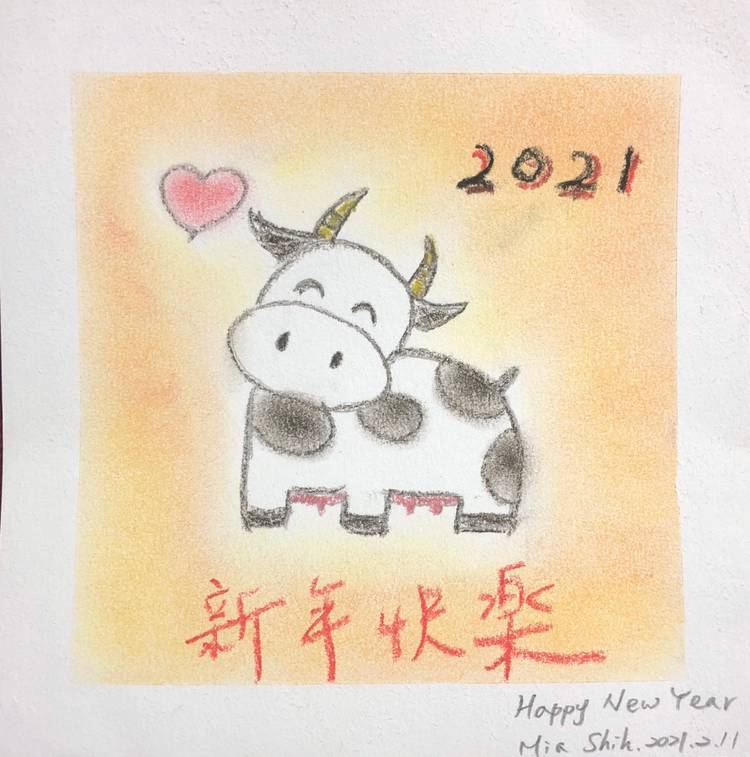 2021
新年快樂
Happy New Year
Mia Shih. 2021.2.11